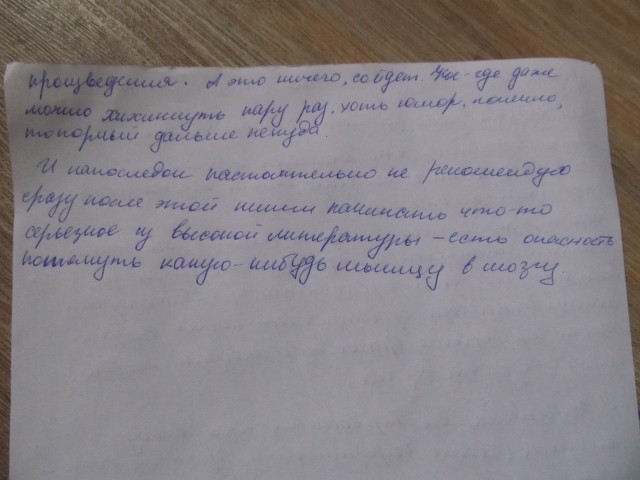 произведения. А это ничего, сойдет. Кое-где даже
можно хихикнуть пару раз, хоть юмор, конечно,
топорный дальше некуда.
И напоследок настоятельно не рекомендую
сразу после этой книги начинать что-то
серьезное из высокой литературы – есть опасность
потянуть какую-нибудь мышцу в мозгу.